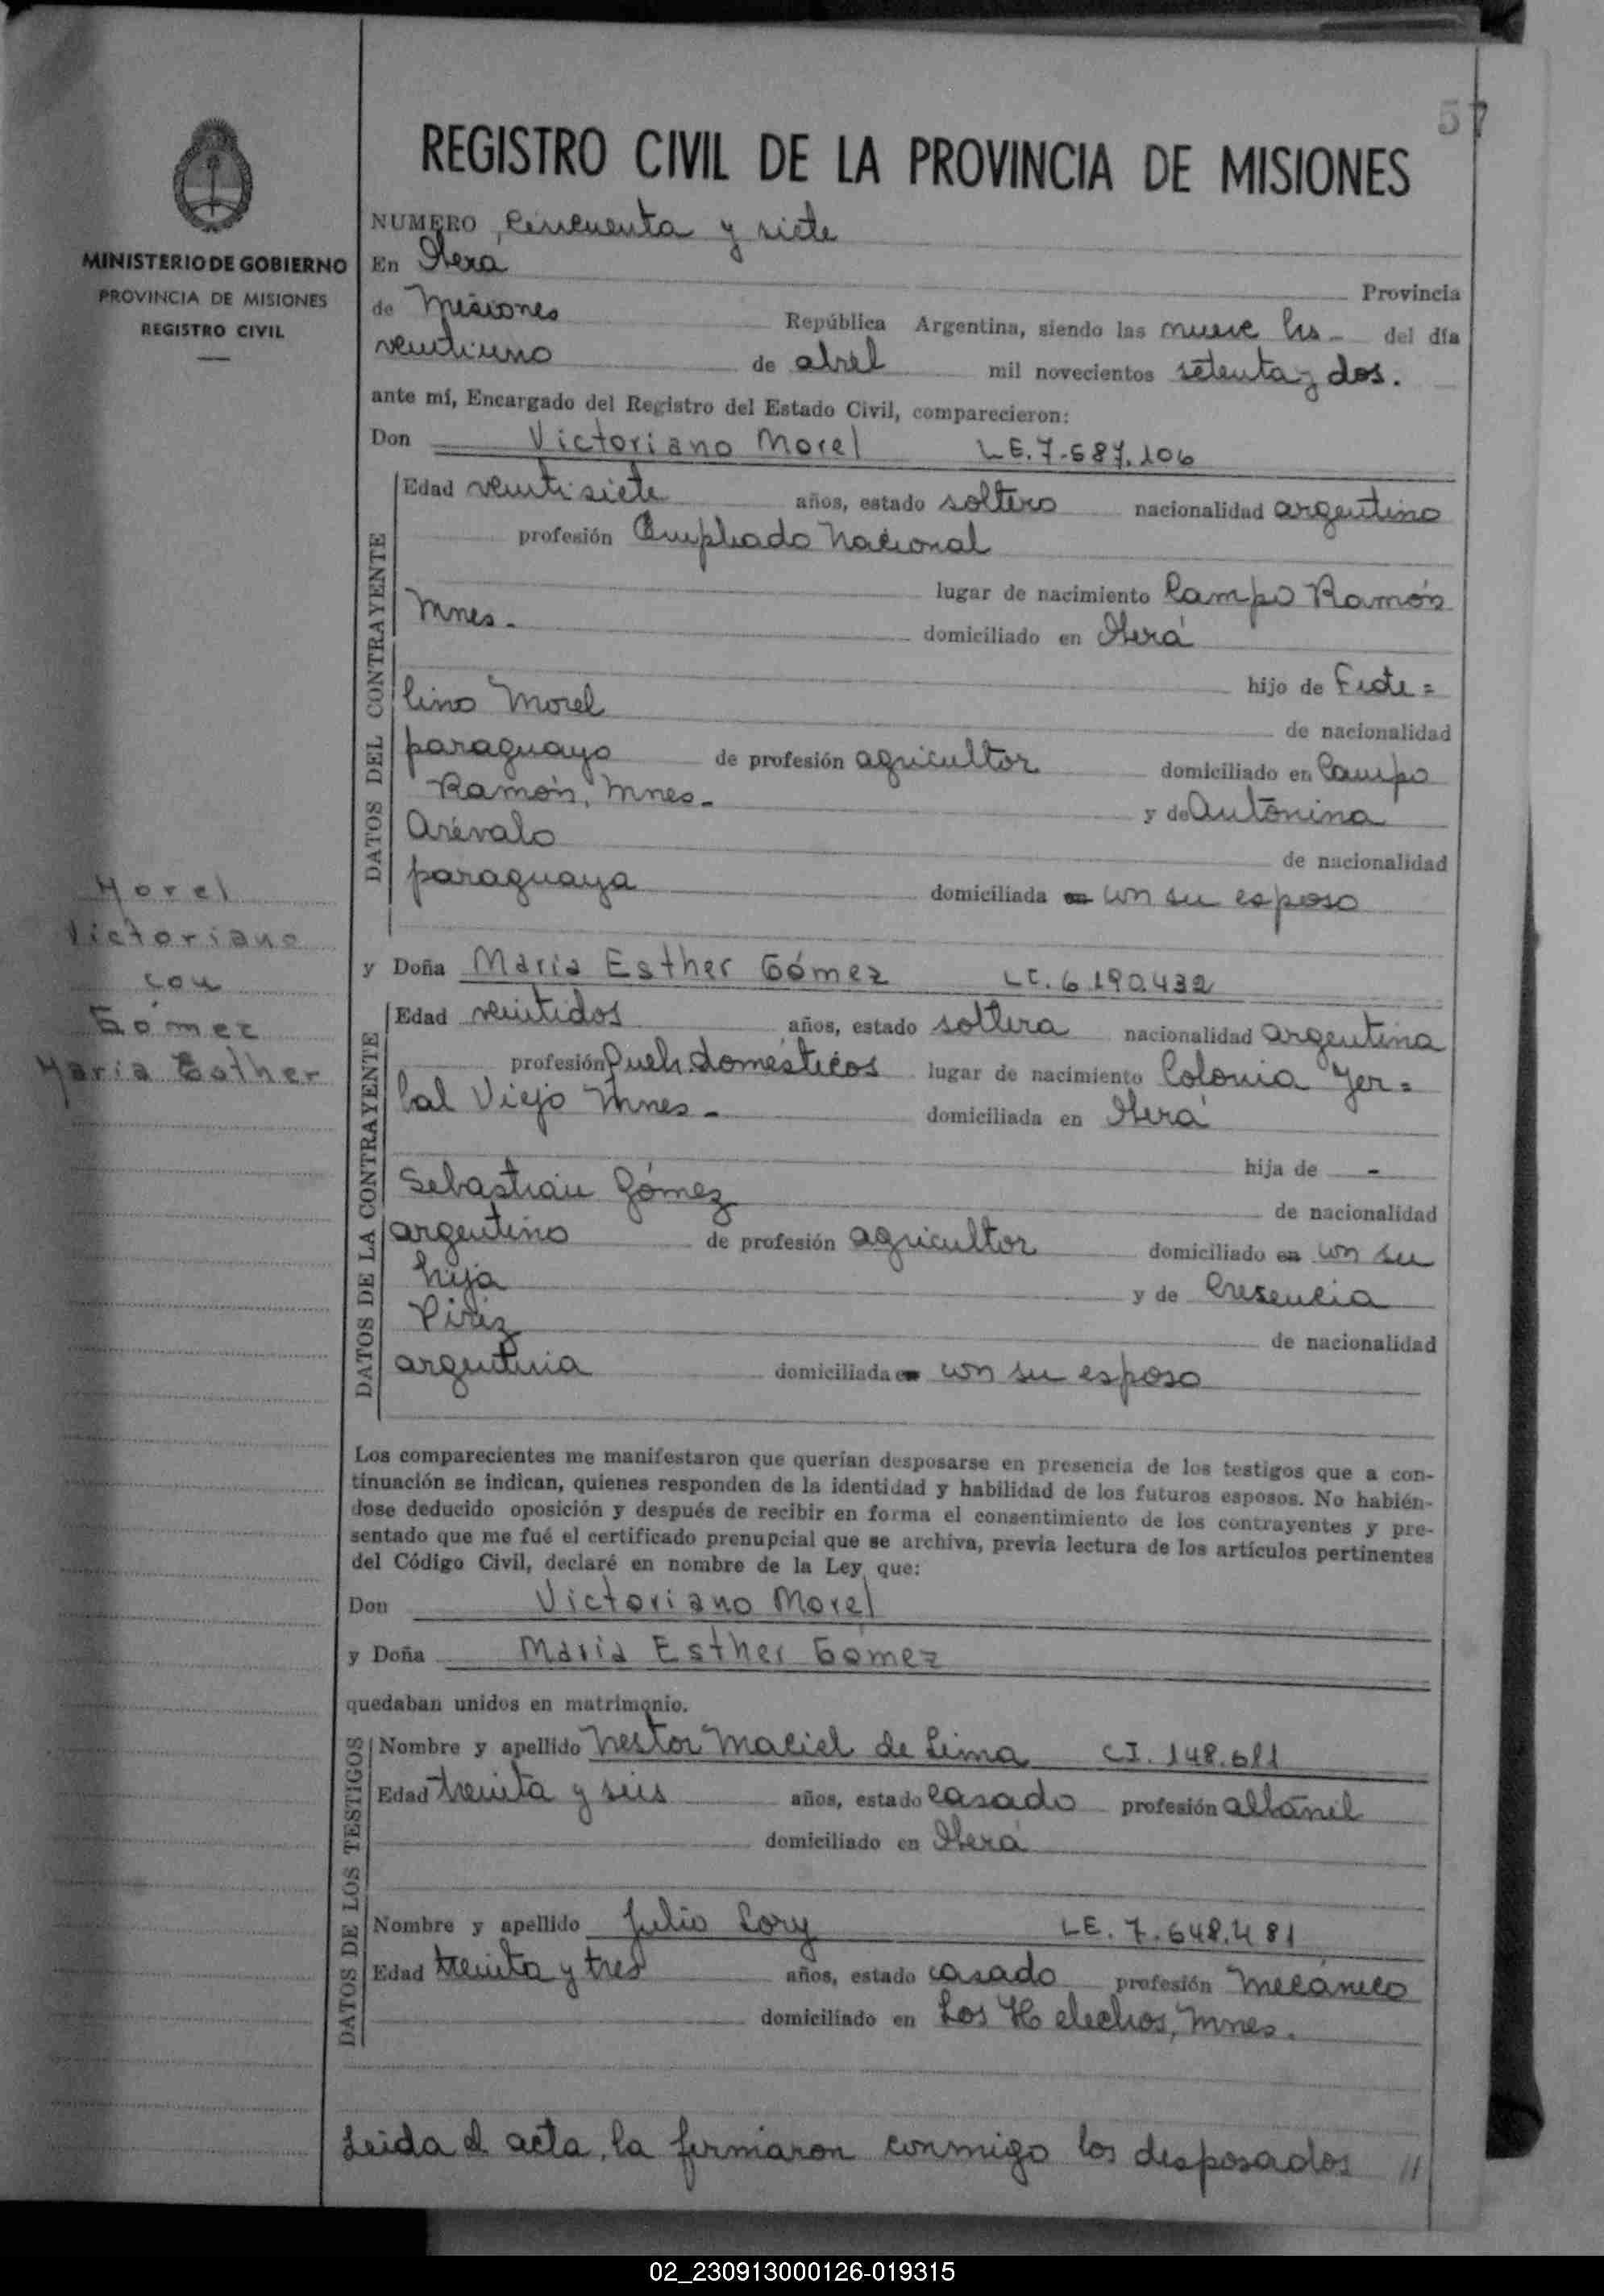 57
REGISTRO CIVIL DE LA PROVINCIA DE MISIONES
MINISTERIO DE GOBIERNO
PROVINCIA DE MISIONES
REGISTRO CIVIL
NUMERO Cincuenta y siete
En Oberá
Provincia
de Misiones República Argentina, siendo las nueve hs - del día
veintiuno de abril mil novecientos setenta y dos.
ante mí, Encargado del Registro del Estado Civil, comparecieron:
Don Victoriano Morel LE. 7.687.106
DATOS DEL CONTRAYENTE
Edad veintisiete años, estado soltero nacionalidad argentino
profesión Empleado Nacional
lugar de nacimiento Campo Ramón
Mnes. domiciliado en Oberá
hijo de Fide=
lino Morel
de nacionalidad
paraguayo de profesión agricultor domiciliado en Campo
Ramón, Mnes. y de Antonina
Arévalo
de nacionalidad
paraguaya domiciliada en con su esposo
Morel
Victoriano
con
Gómez
María Esther
y Doña María Esther Gómez LC. 6.190.432
DATOS DE LA CONTRAYENTE
Edad veintidos años, estado soltera nacionalidad argentina
profesión Queh. domésticos lugar de nacimiento Colonia Yer=
bal Viejo Mnes - domiciliada en Oberá
hija de -
Sebastián Gómez
de nacionalidad
argentino de profesión agricultor domiciliado en con su
hija y de Cresencia
Piriz
de nacionalidad
argentina domiciliada en con su esposo
Los comparecientes me manifestaron que querían desposarse en presencia de los testigos que a con-
tinuación se indican, quienes responden de la identidad y habilidad de los futuros esposos. No habién-
dose deducido oposición y después de recibir en forma el consentimiento de los contrayentes y pre-
sentado que me fué el certificado prenupcial que se archiva, previa lectura de los artículos pertinentes
del Código Civil, declaré en nombre de la Ley que:
Don Victoriano Morel
y Doña María Esther Gómez
quedaban unidos en matrimonio.
DATOS DE LOS TESTIGOS
Nombre y apellido Nestor Maciel de Lima CI. 148.611
Edad treinta y seis años, estado casado profesión albanil
domiciliado en Oberá
Nombre y apellido Julio Lory LE. 7.648.481
Edad treinta y tres años, estado casado profesión mecánico
domiciliado en Los Helechos, Mnes.
Leida el acta, la firmaron conmigo los desposados //
02_230913000126-019315